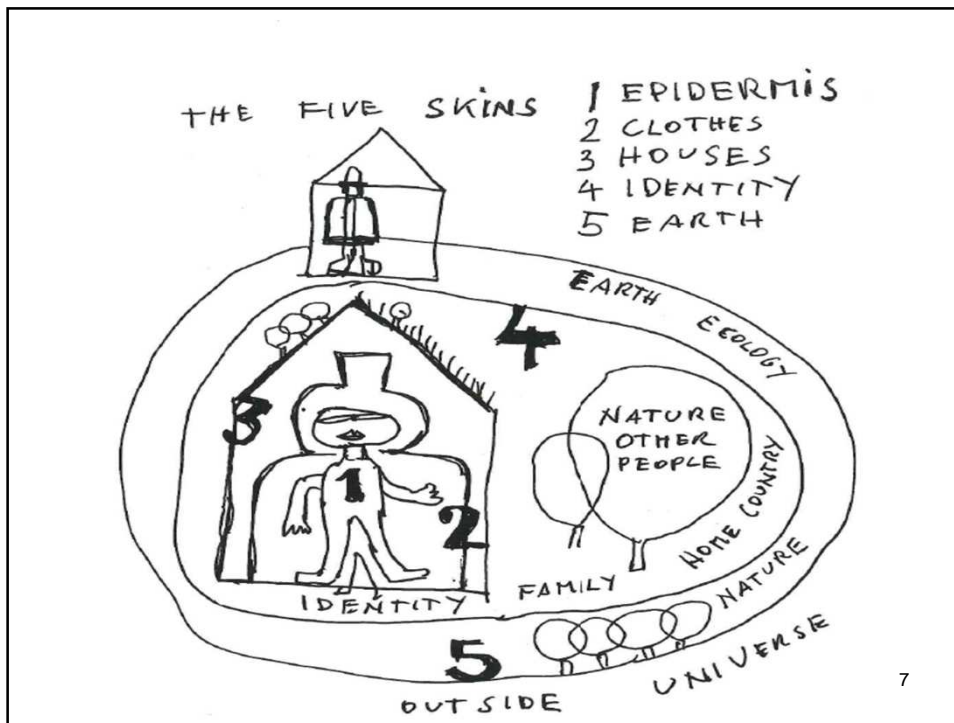 THE FIVE SKINS
1 EPIDERMIS
2 CLOTHES
3 HOUSES
4 IDENTITY
5 EARTH
EARTH ECOLOGY
4
3
1
2
NATURE
OTHER
PEOPLE
HOME COUNTRY
IDENTITY FAMILY
NATURE
5
OUTSIDE UNIVERSE
7